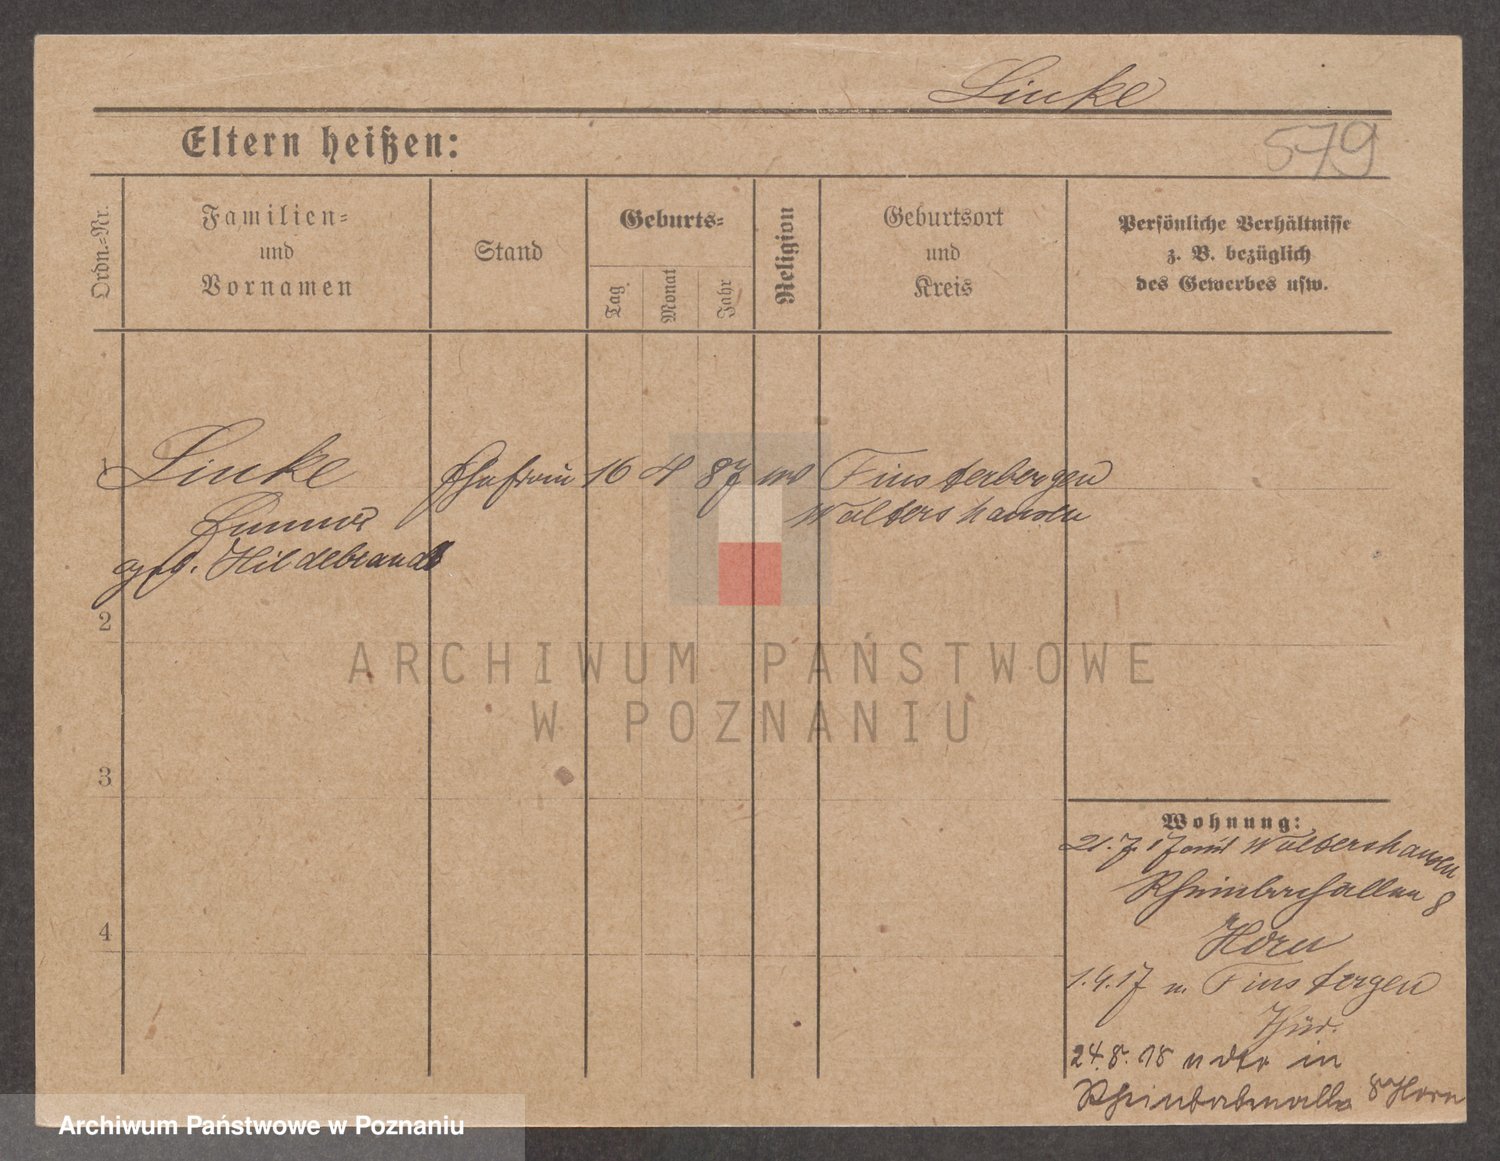 Linke
Eltern heißen:
579
Ordn.=Nr.
Familien=
und
Vornamen
Stand
Geburts=
Tag
Monat
Jahr
Religion
Geburtsort
und
Kreis
Persönliche Verhältnisse
z. B. bezüglich
des Gewerbes usw.
1 Linke Ehefrau 16 4 87 Finsterbergen
Waltershausen
geb. Hildebrandt
2
3
4
Wohnung:
21.7.17 Waltershausen
8
Horn
1.9.17 n. Finstergen
Thür.
24.8.18 in
8 Horn
ARCHIWUM PAŃSTWOWE
W POZNANIU
Archiwum Państwowe w Poznaniu